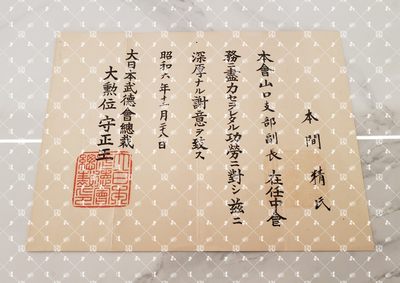 本間精氏
本會山口支部副長在任中會
務ニ盡力セラレタル功勞ニ對シ茲ニ
深厚ナル謝意ヲ致ス
昭和六年十二月二十八日
大日本武德會總裁
大勲位守正王